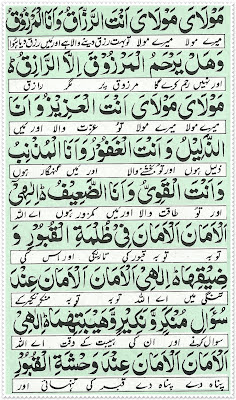 مَوْلَايَ مَوْلَايَ اَنْتَ الرَّزَّاقُ وَاَنَا الْمَرْزُوْقُ
میرے مولا میرے مولا تو بہت رزق دینے والا ہے اور میں رزق دیا ہوا
وَهَلْ يَرْحَمُ الْمَرْزُوْقَ اِلَّا الرَّازِقُ
اور نہیں رحم کرے گا مرزوق پر مگر رازق
مَوْلَايَ مَوْلَايَ اَنْتَ الْعَزِيْزُ وَاَنَا
میرے مولا میرے مولا تو عزت والا اور میں
الذَّلِيْلُ وَاَنْتَ الْغَفُوْرُ وَاَنَا الْمُذْنِبُ
ذلیل ہوں اور تو بخشنے والا اور میں گنہگار ہوں
وَاَنْتَ الْقَوِيُّ وَاَنَا الضَّعِيْفُ اِلٰهِيْ
اور تو طاقت والا اور میں کمزور ہوں اے اللہ
اَلْاَمَانَ الْاَمَانَ فِيْ ظُلْمَةِ الْقُبُوْرِ وَ
توبہ توبہ قبور کی تاریکی اور اس کی
ضِيْقِهَا اِلٰهِيْ اَلْاَمَانَ الْاَمَانَ عِنْدَ
تنگی میں اے اللہ توبہ توبہ
سُؤَالِ مُنْكَرٍ وَّنَكِيْرٍ وَّهَيْبَتِهِمَا اِلٰهِيْ
سوال کرنے اور ان کی ہیبت کے وقت اے اللہ
اَلْاَمَانَ الْاَمَانَ عِنْدَ وَحْشَةِ الْقُبُوْرِ
پناہ دے پناہ دے قبر کی تنہائی اور